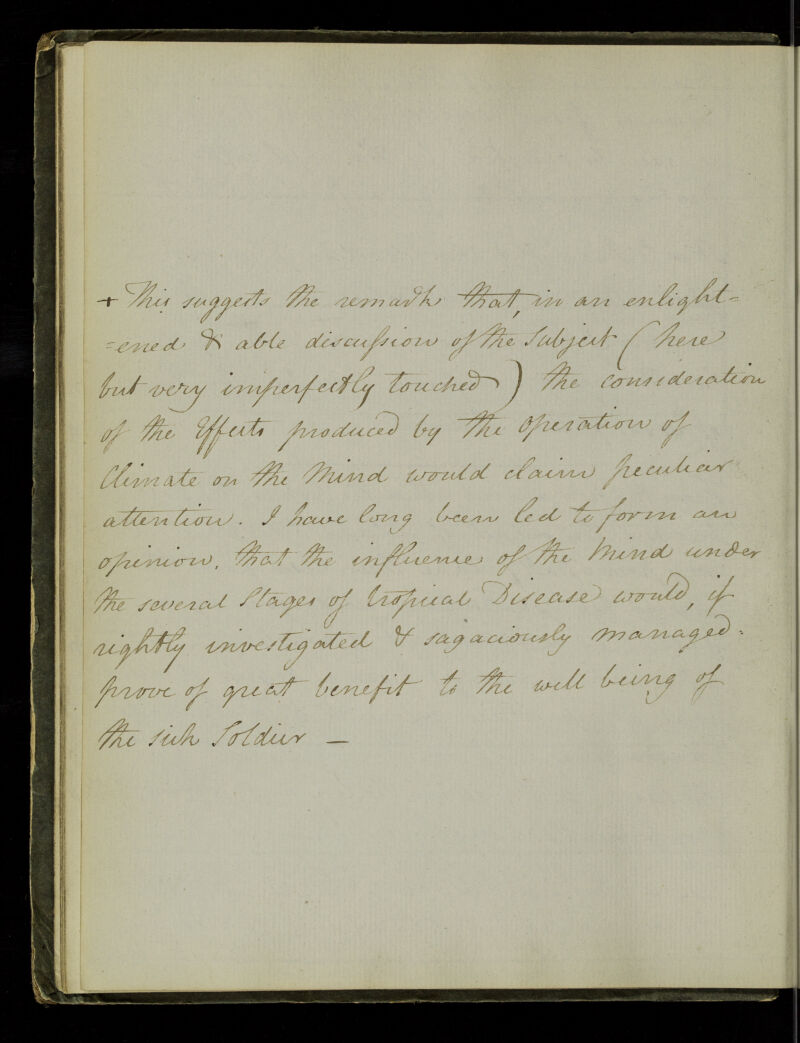 + This suggests the remark that, in an enlight=
=ened & able discussion of the Subject (here
but very imperfectly touched) the consideration
of the Effects produced by the Operation of
Climate on the Mind would claim peculiar
attention. I have long been led to form an
opinion, that the influence of the Mind under
the several Stages of tropical Disease would, if
rightly investigated & sagaciously managed-
prove of great benefit to the well being of
the sick Soldier —